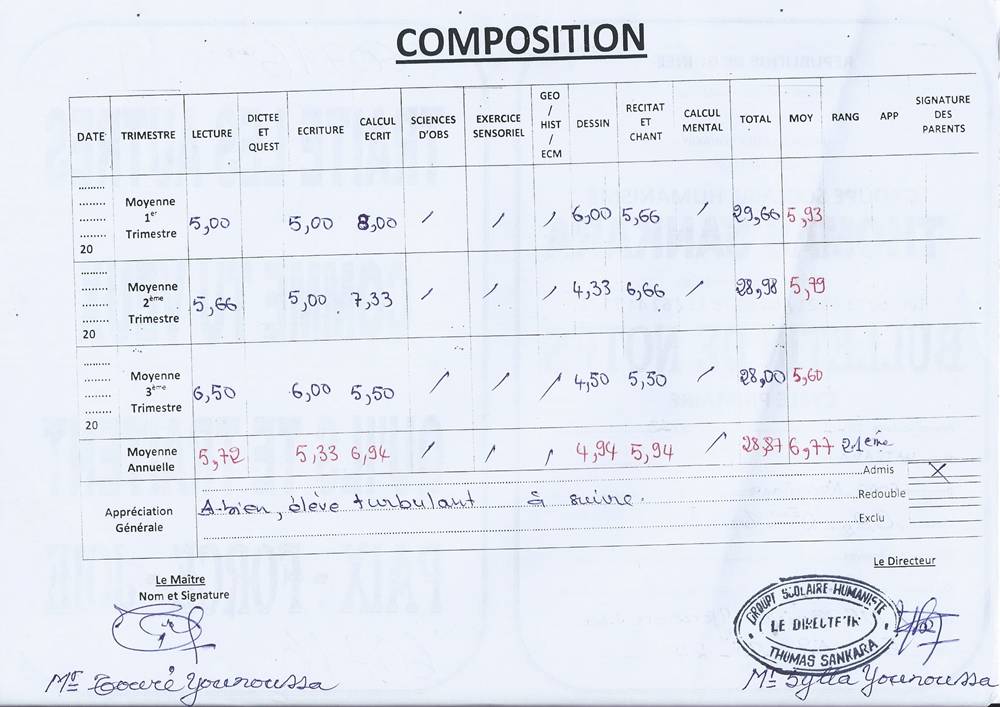 COMPOSITION
DATE TRIMESTRE LECTURE DICTEE ET QUEST ECRITURE CALCUL ECRIT SCIENCES D'OBS EXERCICE SENSORIEL GEO / HIST / ECM DESSIN RECITAT ET CHANT CALCUL MENTAL TOTAL MOY RANG APP SIGNATURE DES PARENTS
......... ......... ........ ........ 20 Moyenne 1er Trimestre 5,00 5,00 8,00 / / / 6,00 5,66 / 29,66 5,93
......... ......... ........ ........ 20 Moyenne 2ème Trimestre 5,66 5,00 7,33 / / / 4,33 6,66 / 28,98 5,79
......... ......... ........ ........ 20 Moyenne 3ème Trimestre 6,50 6,00 5,50 / / / 4,50 5,50 / 28,00 5,60
Moyenne Annuelle 5,72 5,33 6,94 / / / 4,94 5,94 / 28,87 6,77 21ème
Admis X
Appréciation Générale A-bien, élève turbulant à suivre.
Redouble
Exclu
Le Maître
Nom et Signature
Le Directeur
GROUPE SCOLAIRE HUMANISTE
LE DIRECTEUR
THOMAS SANKARA
Mr Touré Younoussa
Mr Sylla Younoussa